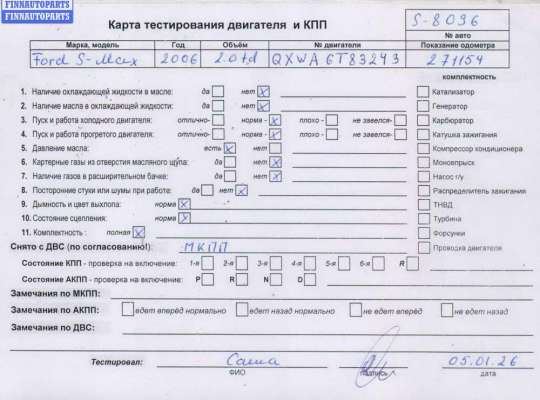 FINNAUTOPARTS
FINNAUTOPARTS
Карта тестирования двигателя и КПП
S-8096
№ авто
Марка, модель Год Объём № двигателя Показание одометра
Ford S-Max 2006 2.0td QXWA 6T83243 271154
комплектность
1. Наличие охлаждающей жидкости в масле: да нет x Катализатор
2. Наличие масла в охлаждающей жидкости: да нет x Генератор
3. Пуск и работа холодного двигателя: отлично- норма - x плохо - не завелся- Карбюратор
4. Пуск и работа прогретого двигателя: отлично- норма - x плохо - не завелся- Катушка зажигания
5. Давление масла: есть x нет Компрессор кондиционера
6. Картерные газы из отверстия масляного щупа: да нет x Моновпрыск
7. Наличие газов в расширительном бачке: да нет x Насос г/у
8. Посторонние стуки или шумы при работе: да нет x Распределитель зажигания
9. Дымность и цвет выхлопа: норма x ТНВД
10. Состояние сцепления: норма x Турбина
11. Комплектность : полная x Форсунки
Снято с ДВС (по согласованию!): МКПП Проводка двигателя
Состояние КПП - проверка на включение: 1-я 2-я 3-я 4-я 5-я 6-я R
Состояние АКПП - проверка на включение: P R N D
Замечания по МКПП:
Замечания по АКПП: едет вперёд нормально едет назад нормально не едет вперёд не едет назад
Замечания по ДВС:
Тестировал: Саша 05.01.26
ФИО подпись дата